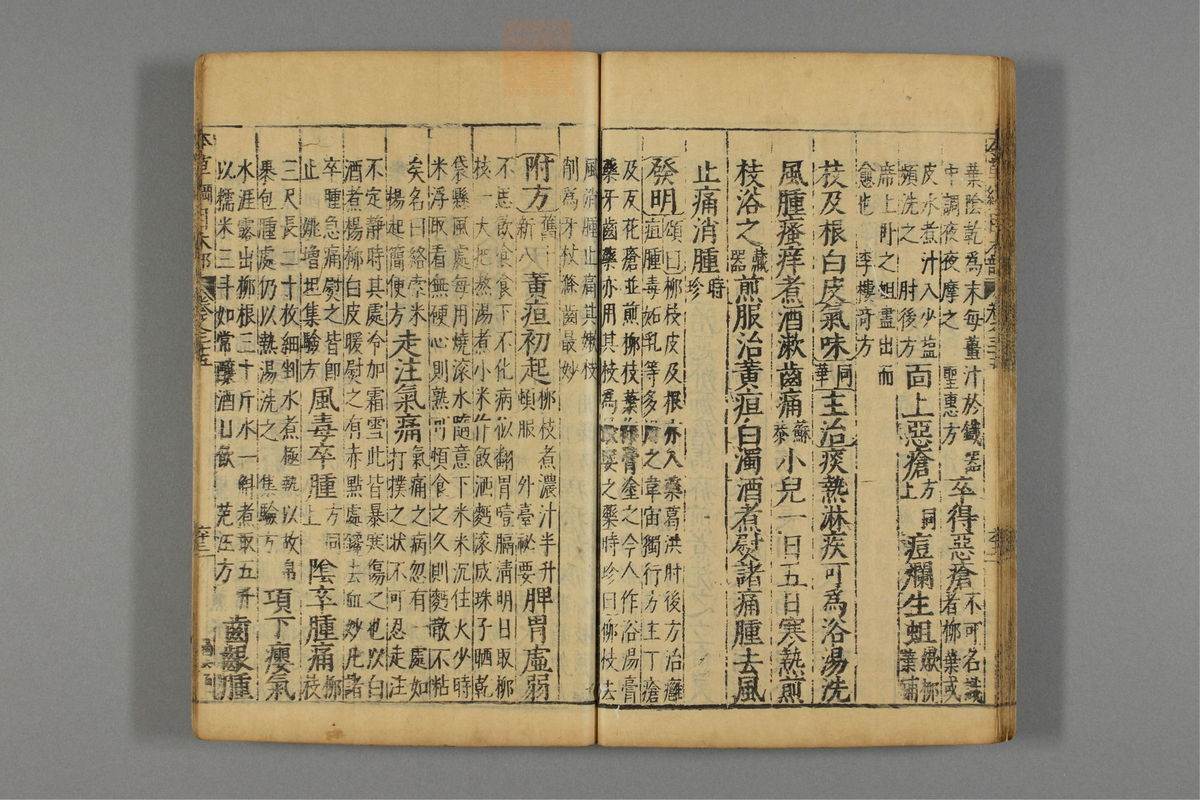 葉陰乾為末每薑汁於鐵器
中調夜夜摩之 聖惠方 卒得惡瘡 不可名識者柳葉或
皮水煮汁入少塩
頻洗之 肘後方 靣上惡瘡 方同上 痘爛生蛆 嫩柳葉鋪
席上卧之蛆盡出而
愈也 李樓竒方
枝及根白皮氣味 同華 主治 痰熱淋疾可為浴湯洗
風腫瘙痒煮酒漱齒痛 蘇恭 小兒一日五日寒熱煎
枝浴之 藏器 煎服治黃疸白濁酒煮熨諸痛腫去風
止痛消腫 時珍
發明 頌曰柳枝皮及根亦入藥葛洪肘後方治癰
疽腫毒妬乳等多用之韋宙獨行方主丁瘡
及反花瘡並煎柳枝葉作膏塗之今人作浴湯膏
藥牙齒藥亦用其枝為最要之藥時珍曰柳枝去
風消腫止痛其嫩枝
削為牙杖滌齒最妙
附方 舊 新八 黃疸初起 柳枝煮濃汁半升頓服 外臺祕要 脾胃虛弱
不思飲食食下不化病似翻胃噎膈清明日取柳
枝一大把熬湯煮小米作飯洒麪滚成珠子晒乾
袋懸風處每用燒滚水隨意下米米沉住火少時
米浮取看無硬心則熟可頓食之久則麪散不粘
矣名曰絡索米 簡便方 走注氣痛 氣痛之病忽有一處如
打撲之狀不可忍走注
不定靜時其處冷如霜雪此皆暴寒傷之也以白
酒煮楊柳白皮暖熨之有赤點處鎞去血妙凡諸
卒腫急痛熨之皆即
止 姚增坦集驗方 風毒卒腫 方同上 陰卒腫痛 柳枝
三尺長二十枚細剉水煮極熱以故帛
褁包腫處仍以熱湯洗之 集驗方 項下癭氣
水涯露出柳根三十斤水一斛煮取五升
以糯米三斗如常釀酒日飲 范汪方 齒齦腫